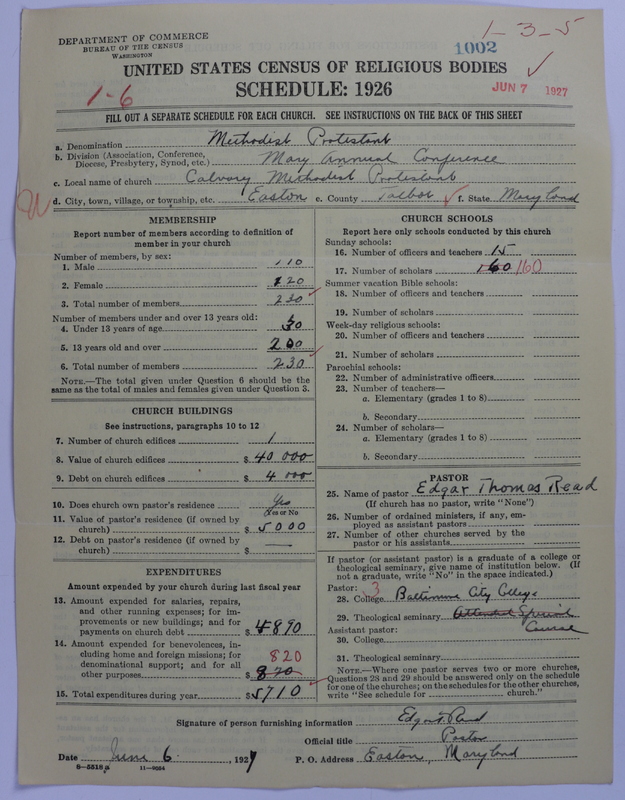 1-3-5
DEPARTMENT OF COMMERCE
BUREAU OF THE CENSUS
WASHINGTON
1002
UNITED STATES CENSUS OF RELIGIOUS BODIES
SCHEDULE: 1926
JUN 7 1927
1-6
FILL OUT A SEPARATE SCHEDULE FOR EACH CHURCH. SEE INSTRUCTIONS ON THE BACK OF THIS SHEET
a. Denomination Methodist Protestant
b. Division (Association, Conference, Diocese, Presbytery, Synod, etc.) Mary Annual Conference
c. Local name of church Calvary Methodist Protestant
d. City, town, village, or township, etc. Easton e. County Talbot f. State Maryland
MEMBERSHIP
Report number of members according to definition of
member in your church
Number of members, by sex:
1. Male 110
2. Female 120
3. Total number of members 230
Number of members under and over 13 years old:
4. Under 13 years of age 30
5. 13 years old and over 200
6. Total number of members 230
NOTE.—The total given under Question 6 should be the
same as the total of males and females given under Question 3.
CHURCH BUILDINGS
See instructions, paragraphs 10 to 12
7. Number of church edifices 1
8. Value of church edifices $ 40 000
9. Debt on church edifices $ 4 000
10. Does church own pastor's residence Yes
Yes or No
11. Value of pastor's residence (if owned by
church) $ 5000
12. Debt on pastor's residence (if owned by
church) $
EXPENDITURES
Amount expended by your church during last fiscal year
13. Amount expended for salaries, repairs,
and other running expenses; for im-
provements or new buildings; and for
payments on church debt $ 4890
14. Amount expended for benevolences, in-
cluding home and foreign missions; for
denominational support; and for all
other purposes $ 820 820
15. Total expenditures during year $ 5710
CHURCH SCHOOLS
Report here only schools conducted by this church
Sunday schools:
16. Number of officers and teachers 15
17. Number of scholars 160 160
Summer vacation Bible schools:
18. Number of officers and teachers
19. Number of scholars
Week-day religious schools:
20. Number of officers and teachers
21. Number of scholars
Parochial schools:
22. Number of administrative officers
23. Number of teachers—
a. Elementary (grades 1 to 8)
b. Secondary
24. Number of scholars—
a. Elementary (grades 1 to 8)
b. Secondary
PASTOR
25. Name of pastor Edgar Thomas Read
(If church has no pastor, write "None")
26. Number of ordained ministers, if any, em-
ployed as assistant pastors
27. Number of other churches served by the
pastor or his assistants
If pastor (or assistant pastor) is a graduate of a college or
theological seminary, give name of institution below. (If
not a graduate, write "No" in the space indicated.)
Pastor: 3
28. College Baltimore City College
29. Theological seminary Attended Special
Course
Assistant pastor:
30. College
31. Theological seminary
NOTE.—Where one pastor serves two or more churches,
Questions 28 and 29 should be answered only on the schedule
for one of the churches; on the schedules for the other churches,
write "See schedule for church."
Signature of person furnishing information Edgar T. Read
Official title Pastor
Date June 6, 1927 P. O. Address Easton, Maryland
8-5518 a 11-9034